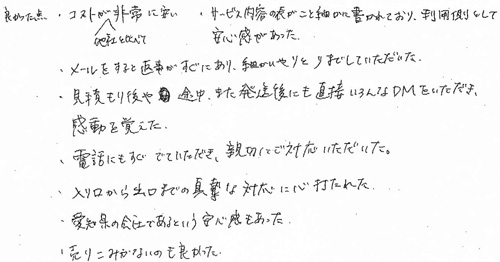 良かった点 ・コストが非常に安い ・サービス内容の表がこと細かに書かれており、利用側として
他社と比べて 安心感があった。
・メールをすると返事がすぐにあり、細かいやりとりまでしていただいた。
・見積もり後や 途中、また発送後にも直接いろんなDMをいただき、
感動を覚えた。
・電話にもすぐでていただき、親切にご対応いただいた。
・入り口から出口までの真摯な対応に心打たれた。
・愛知県の会社であるという安心感もあった。
・売りこみがないのも良かった。